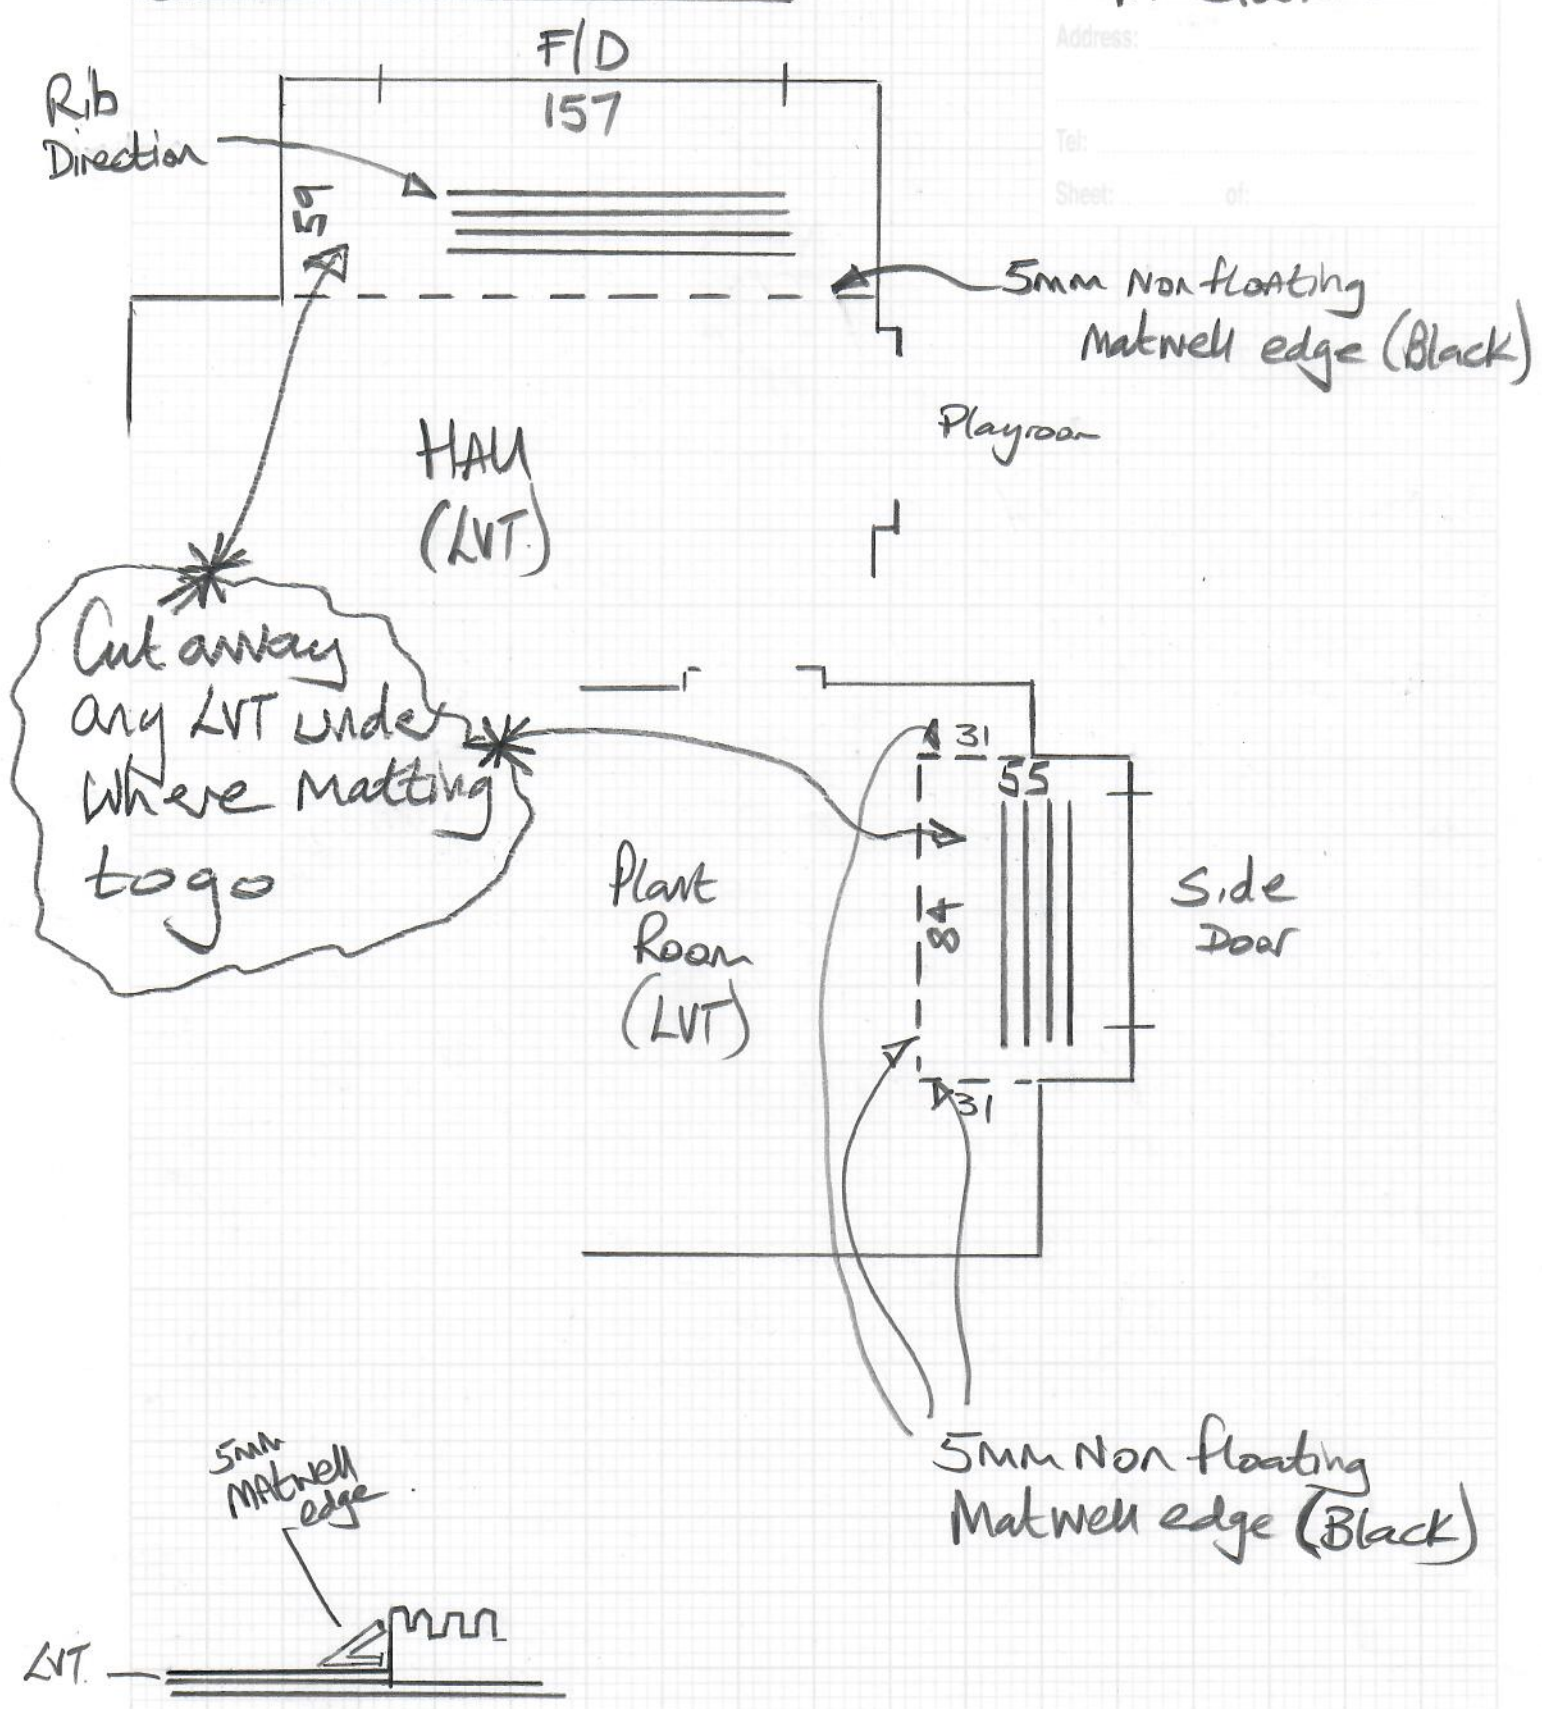 Address:
F/D
157
Rib
Direction
Tel:
59
Sheet: of:
5mm Non floating
Matwell edge (Black)
Playroom
HALL
(LVT)
Cut away
any LVT under
where Matting
to go
31
55
Plant
Room
(LVT)
84
Side
Door
31
5mm Non floating
Matwell edge (Black)
5mm
Matwell
edge
LVT